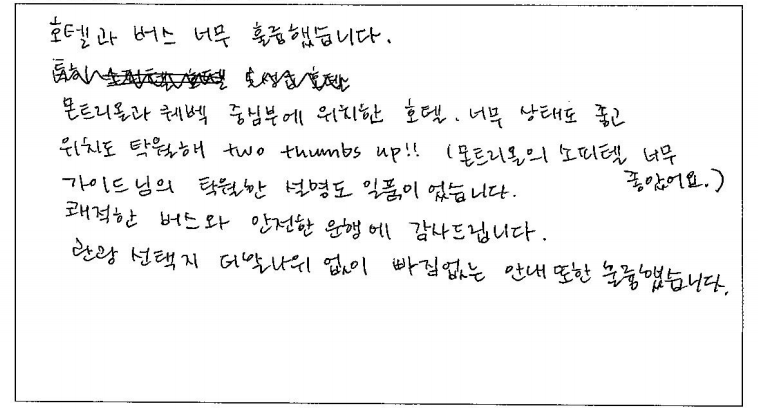 호텔과 버스 너무 훌륭했습니다.
몬트리올과 퀘벡 중심부에 위치한 호텔. 너무 상태도 좋고
위치도 탁월해 two thumbs up!! (몬트리올의 소피텔 너무 좋았어요.)
가이드님의 탁월한 설명도 일품이었습니다.
쾌적한 버스와 안전한 운행에 감사드립니다.
관광 선택지 더말나위 없이 빠짐없는 안내 또한 훌륭했습니다.